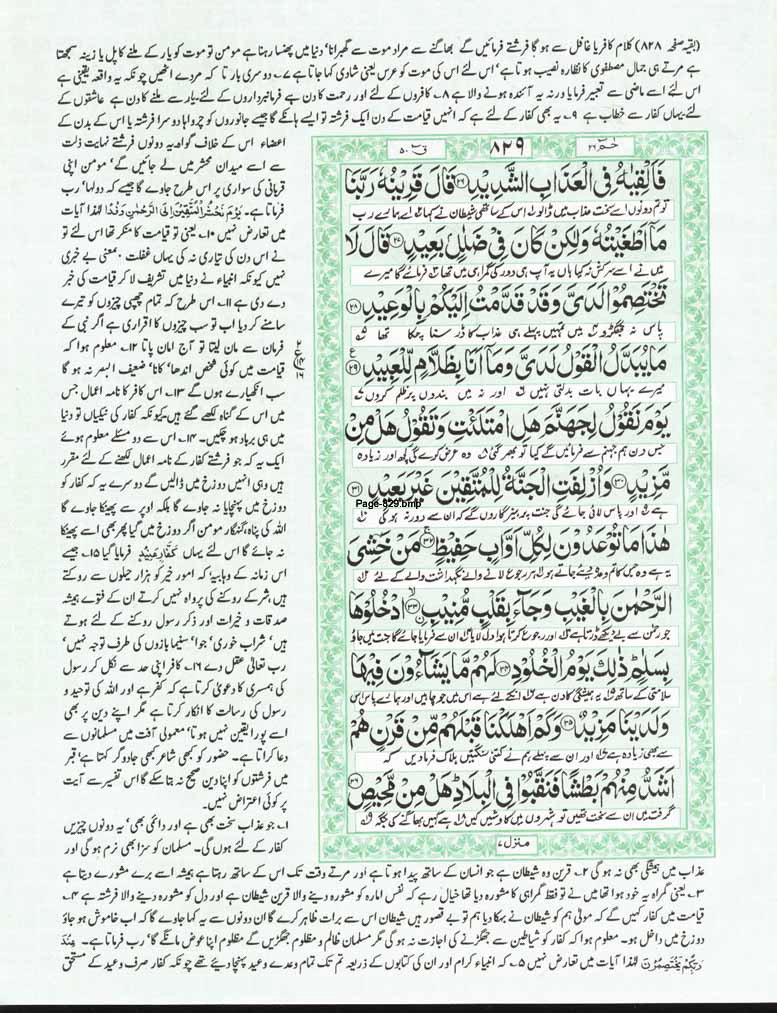 (بقیہ صفحہ ۸۲۸) کلام کافر یا غافل سے ہو گا فرشتے فرمائیں گے بھاگنے سے مراد موت سے گھبرانا' دنیا میں پھنسا رہنا ہے مومن تو موت کو یار کے ملنے کا پل یا زینہ سمجھتا
ہے مرتے ہی جمال مصطفوی کا نظارہ نصیب ہوتا ہے' اس لئے اس کی موت کو عرس یعنی شادی کہا جاتا ہے ۷۔ دوسری بار تا کہ مردے اٹھیں چونکہ یہ واقعہ یقینی ہے
اس لئے اسے ماضی سے تعبیر فرمایا ورنہ یہ آئندہ ہونے والا ہے ۸۔ کافروں کے لئے اور رحمت کا دن ہے فرمانبرداروں کے لئے۔ یار سے ملنے کا دن ہے عاشقوں کے
لئے یہاں کفار سے خطاب ہے ۹۔ یہ بھی کفار کے لئے ہے کہ انہیں قیامت کے دن ایک فرشتہ تو ایسے ہانکے گا جیسے جانوروں کو چرواہا دوسرا فرشتہ یا اس کے بدن کے
اعضاء اس کے خلاف گواہ۔ یہ دونوں فرشتے نہایت ذلت
سے اسے میدان محشر میں لے جائیں گے' مومن اپنی
قربانی کی سواری پر اس طرح جاوے گا جیسے کہ دولہا' رب
فرماتا ہے۔ یَوْمَ نَحْشُرُ الْمُتَّقِیْنَ اِلَی الرَّحْمٰنِ وَفْدًا لہٰذا آیات
میں تعارض نہیں ۱۰۔ یعنی تو قیامت کا منکر تھا اس لئے تو
نے اس دن کی تیاری نہ کی یہاں غفلت بمعنی بے خبری
نہیں کیونکہ انبیاء نے دنیا میں تشریف لا کر قیامت کی خبر
دے دی ہے ۱۱۔ اس طرح کہ تمام چھپی چیزوں کو تیرے
سامنے کر دیا اب تو سب چیزوں کا اقراری ہے اگر نبی کے
فرمان سے مان لیتا تو آج امان پاتا ۱۲۔ معلوم ہوا کہ
قیامت میں کوئی شخص اندھا' کانا' ضعیف البصر نہ ہو گا
سب انکھیارے ہوں گے ۱۳۔ اس کافر کا نامہ اعمال جس
میں اس کے گناہ لکھے گئے ہیں کیونکہ کفار کی نیکیاں تو دنیا
میں ہی برباد ہو چکیں۔ ۱۴۔ اس سے دو مسئلے معلوم ہوئے
ایک یہ کہ جو فرشتے کفار کے نامہ اعمال لکھنے کے لئے مقرر
ہیں وہی انہیں دوزخ میں ڈالیں گے دوسرے یہ کہ کفار کو
دوزخ میں پہنچایا نہ جاوے گا بلکہ اوپر سے پھینکا جاوے گا
اللہ کی پناہ گنہگار مومن اگر دوزخ میں گیا پھر بھی اسے پھینکا
نہ جائے گا اس لئے یہاں کَفَّارٍ عَنِیْدٍ فرمایا گیا ۱۵۔ جیسے
اس زمانہ کے وہابیہ کہ امور خیر کو ہزار حیلوں سے روکتے
ہیں شر کے روکنے کی پرواہ نہیں کرتے ان کے فتوے ہمیشہ
صدقات و خیرات اور ذکر رسول روکنے کے لئے ہوتے
ہیں' شراب خوری' جوا' سنیما بازوں کی طرف توجہ نہیں'
رب تعالیٰ عقل دے ۱۶۔ کافر اپنی حد سے نکل کر رسول
کی ہمسری کا دعویٰ کرتا ہے کہ کفر ہے اور اللہ کی توحید و
رسول کی رسالت کا انکار کرتا ہے مگر اپنے دین پر بھی
اسے پورا یقین نہیں ہوتا' معمولی آفت میں مسلمانوں سے
دعا کراتا ہے۔ حضور کو کبھی شاعر کبھی جادوگر کہتا ہے' قبر
میں فرشتوں کو اپنا دین صحیح نہ بتا سکے گا اس تفسیر سے آیت
پر کوئی اعتراض نہیں۔
۱۔ جو عذاب سخت بھی ہے اور دائمی بھی' یہ دونوں چیزیں
کفار کے لئے ہوں گی۔ مسلمان کو سزا بھی نرم ہو گی اور
حٰمٓ ۲۶
۸۲۹
قٓ ۵۰
فَاَلْقِیٰهُ فِی الْعَذَابِ الشَّدِیْدِ ۲۶ قَالَ قَرِیْنُهٗ رَبَّنَا
تو تم دونوں اسے سخت عذاب میں ڈالو اس کے ساتھی شیطان نے کہا اے ہمارے رب
مَاۤ اَطْغَیْتُهٗ وَلٰكِنْ كَانَ فِیْ ضَلٰلٍۭ بَعِیْدٍ ۲۷ قَالَ لَا
میں نے اسے سرکش نہ کیا ہاں یہ آپ ہی دور کی گمراہی میں تھا فرمائے گا میرے
تَخْتَصِمُوْا لَدَیَّ وَقَدْ قَدَّمْتُ اِلَیْكُمْ بِالْوَعِیْدِ ۲۸
پاس نہ جھگڑو میں تمہیں پہلے ہی عذاب کا ڈر سنا چکا تھا
مَا یُبَدَّلُ الْقَوْلُ لَدَیَّ وَمَاۤ اَنَا بِظَلَّامٍ لِّلْعَبِیْدِ ۲۹
میرے یہاں بات بدلتی نہیں اور نہ میں بندوں پر ظلم کروں
یَوْمَ نَقُوْلُ لِجَهَنَّمَ هَلِ امْتَلَاْتِ وَتَقُوْلُ هَلْ مِنْ
جس دن ہم جہنم سے فرمائیں گے کیا تو بھر گئی وہ عرض کرے گی کچھ اور زیادہ
مَّزِیْدٍ ۳۰ وَاُزْلِفَتِ الْجَنَّةُ لِلْمُتَّقِیْنَ غَیْرَ بَعِیْدٍ ۳۱
Page-829.bmp
ہے اور پاس لائی جائے گی جنت پرہیزگاروں کے کہ ان سے دور نہ ہو گی
هٰذَا مَا تُوْعَدُوْنَ لِكُلِّ اَوَّابٍ حَفِیْظٍ ۳۲ مَنْ خَشِیَ
یہ ہے وہ جس کا تم وعدہ دیئے جاتے ہو ہر رجوع لانے والے نگہداشت والے کے لئے
الرَّحْمٰنَ بِالْغَیْبِ وَجَآءَ بِقَلْبٍ مُّنِیْبِ ۳۳ ادْخُلُوْهَا
جو رحمٰن سے بے دیکھے ڈرتا ہے اور رجوع کرتا ہوا دل لایا ان سے فرمایا جائے گا جنت میں جاؤ
بِسَلٰمٍ ذٰلِكَ یَوْمُ الْخُلُوْدِ ۳۴ لَهُمْ مَّا یَشَآءُوْنَ فِیْهَا
سلامتی کے ساتھ یہ ہمیشگی کا دن ہے ان کے لئے ہے اس میں جو چاہیں اور ہمارے پاس اس
وَلَدَیْنَا مَزِیْدٌ ۳۵ وَكَمْ اَهْلَكْنَا قَبْلَهُمْ مِّنْ قَرْنٍ هُمْ
سے بھی زیادہ ہے اور ان سے پہلے ہم نے کتنی سنگتیں ہلاک فرما دیں کہ
اَشَدُّ مِنْهُمْ بَطْشًا فَنَقَّبُوْا فِی الْبِلَادِ هَلْ مِنْ مَّحِیْصٍ ۳۶
گرفت میں ان سے سخت تھیں تو شہروں میں کاوشیں کیں ہے کہیں بھاگنے کی جگہ
منزل ۷
عذاب میں ہیشگی بھی نہ ہو گی ۲۔ قرین وہ شیطان ہے جو انسان کے ساتھ پیدا ہوتا ہے اور مرتے وقت تک اس کے ساتھ رہتا ہے ہمیشہ اسے برے مشورے دیتا ہے
۳۔ یعنی گمراہ یہ خود ہوا تھا میں نے تو فقط گمراہی کا مشورہ دیا تھا خیال رہے کہ نفس امارہ کو مشورہ دینے والا قرین شیطان ہے اور دل کو مشورہ دینے والا فرشتہ ہے ۴۔
قیامت میں کفار کہیں گے کہ مولیٰ ہم کو شیطان نے بہکا دیا ہم تو بے قصور ہیں شیطان اس سے برات ظاہر کرے گا ان دونوں سے یہ کہا جاوے گا کہ اب خاموش ہو جاؤ
دوزخ میں داخل ہو۔ معلوم ہوا کہ کفار کو شیاطین سے جھگڑنے کی اجازت نہ ہو گی مگر مسلمان ظالم و مظلوم جھگڑیں گے مظلوم اپنا عوض مانگے گا' رب فرماتا ہے۔ عِنْدَ
رَبِّكُمْ تَخْتَصِمُوْنَ لہٰذا آیات میں تعارض نہیں ۵۔ کہ انبیاء کرام اور ان کی کتابوں کے ذریعہ تم تک تمام وعدے وعید پہنچا دیئے تھے چونکہ کفار صرف وعید کے مستحق